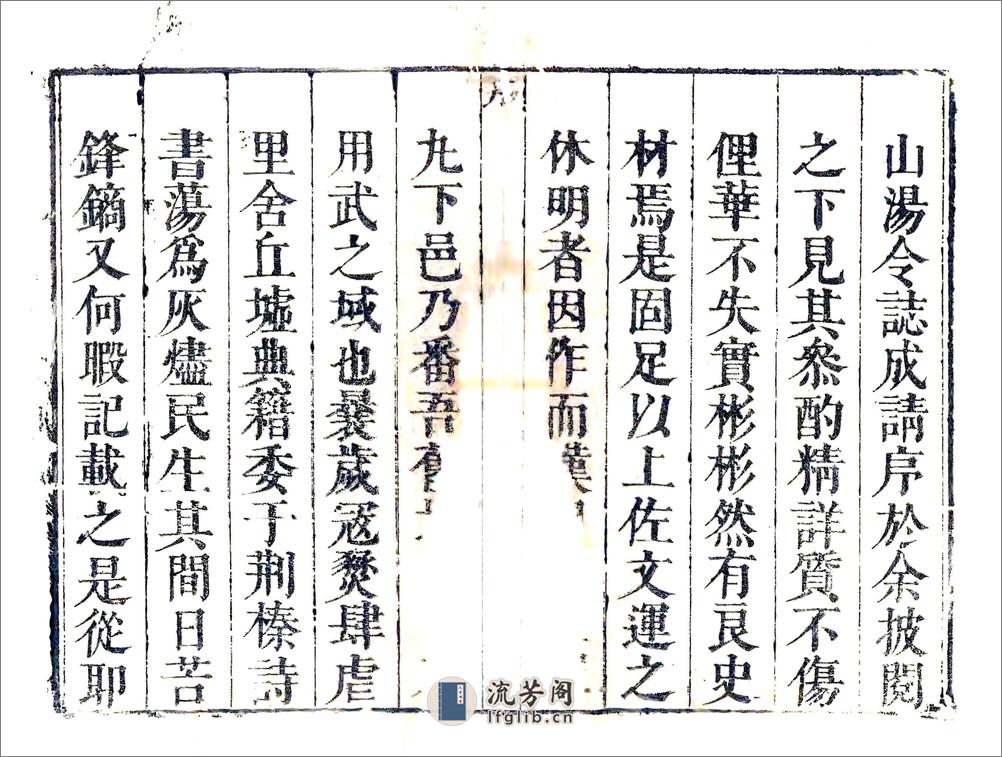 山湯令誌成請序於余披閱
之下見其叅酌精詳質不傷
俚華不失實彬彬然有良史
材焉是固足以上佐文運之
休明者因作而
九下邑乃番吾
用武之域也曩歲寇燹肆虐
里舍丘墟典籍委于荆榛詩
書蕩爲灰燼民生其間日苦
鋒鏑又何暇記載之是從耶
流芳阁
lfglib.cn